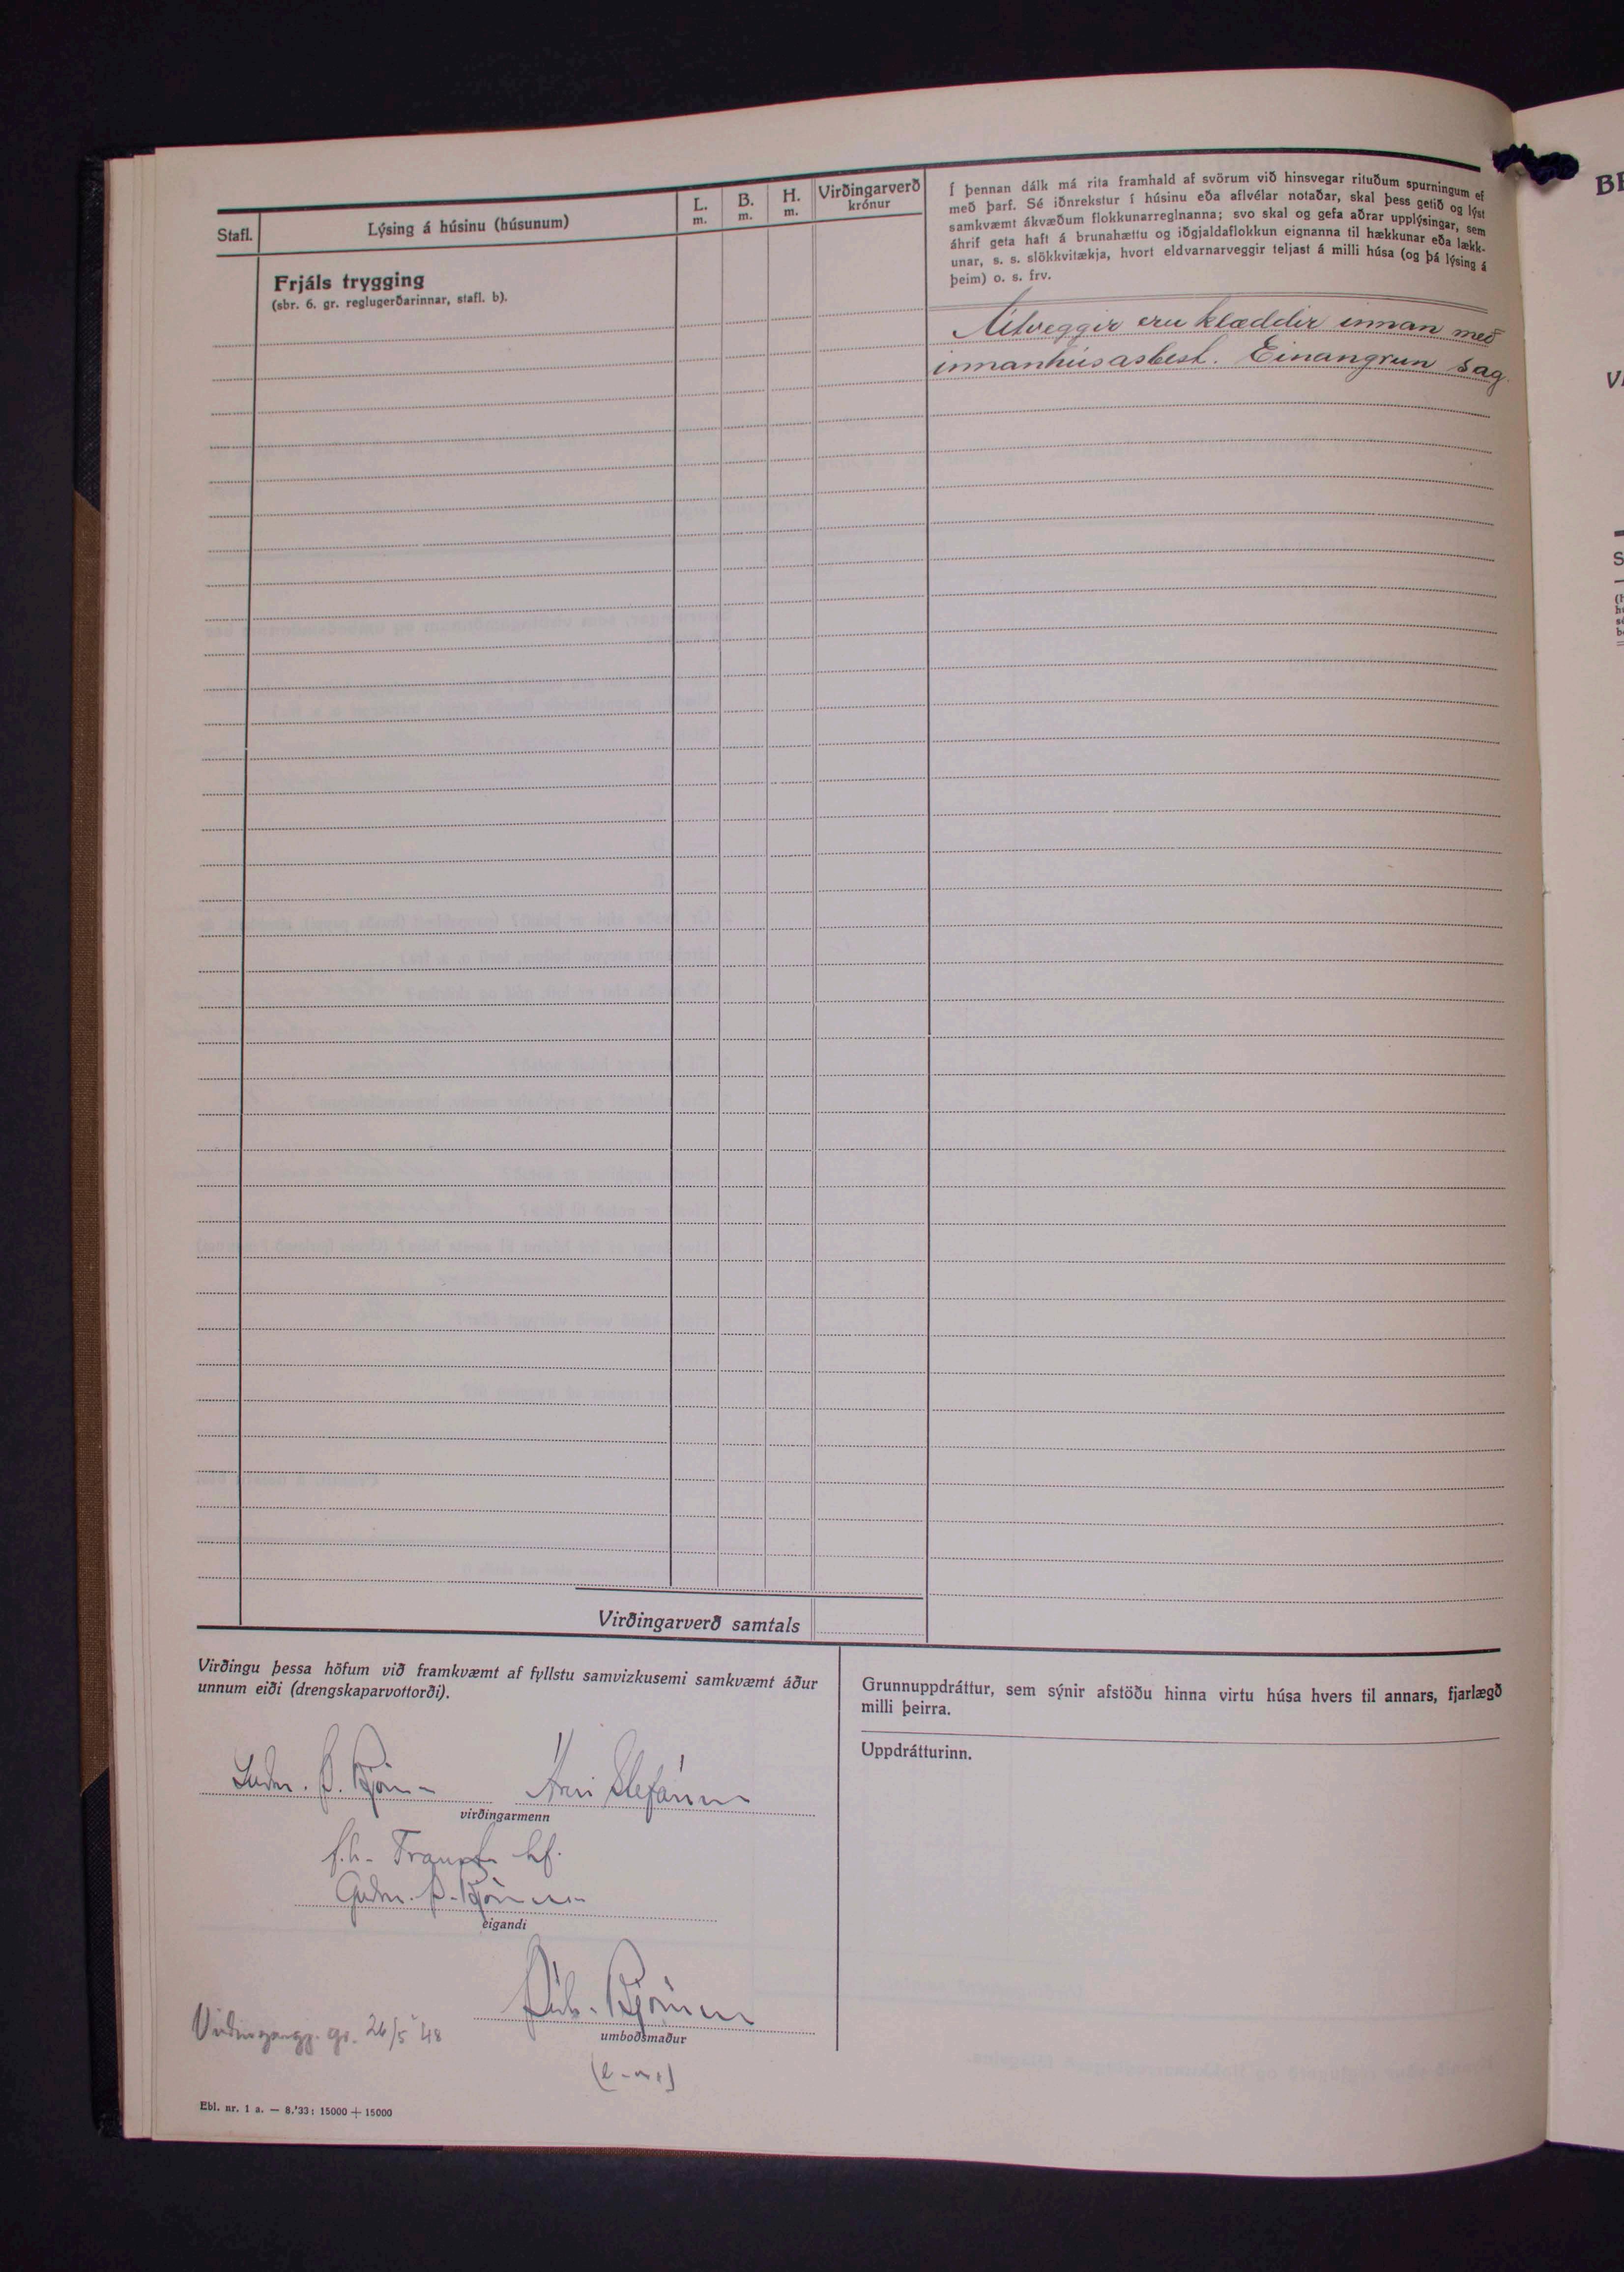 Stafl.
Lýsing á húsinu (húsunum)
L.
m.
B.
m.
H.
m.
Virðingarverð
krónur
Frjáls trygging
(sbr. 6. gr. reglugerðarinnar, stafl. b).
Í þennan dálk má rita framhald af svörum við hinsvegar rituðum spurningum ef
með þarf. Sé iðnrekstur í húsinu eða aflvélar notaðar, skal þess getið og lýst
samkvæmt ákvæðum flokkunarreglnanna; svo skal og gefa aðrar upplýsingar, sem
áhrif geta haft á brunahættu og iðgjaldaflokkun eignanna til hækkunar eða lækk-
unar, s. s. slökkvitækja, hvort eldvarnarveggir teljast á milli húsa (og þá lýsing á
þeim) o. s. frv.
Útveggir eru klæddir innan með
innanhúsasbest. Einangrun sag.
Virðingarverð samtals
Virðingu þessa höfum við framkvæmt af fyllstu samvizkusemi samkvæmt áður
unnum eiði (drengskaparvottorði).
Árni Stefánsson
virðingarmenn
hf.
Guðm. Þ. Björnsson
eigandi
Björnsson
umboðsmaður
gr. 26/5 '48
Ebl. nr. 1 a. — 8.'33: 15000 + 15000
Grunnuppdráttur, sem sýnir afstöðu hinna virtu húsa hvers til annars, fjarlægð
milli þeirra.
Uppdrátturinn.